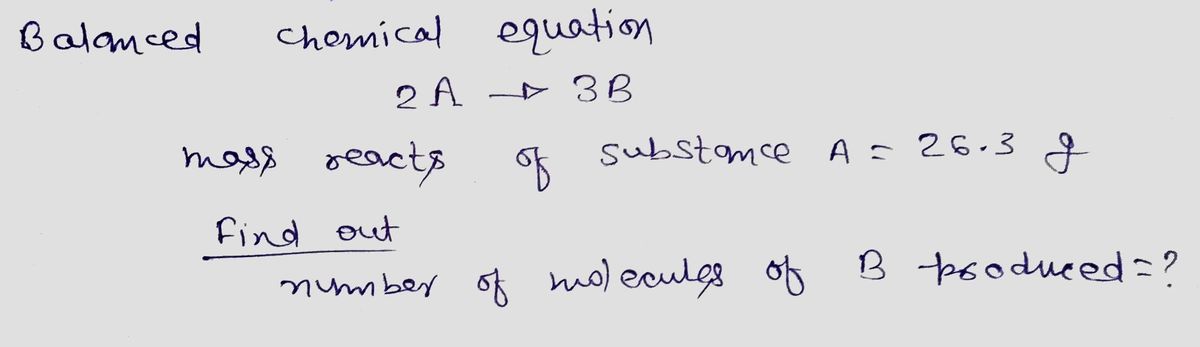 Balanced chemical equation
2A → 3B
mass reacts of substance A = 26.3 g
Find out
number of molecules of B produced = ?